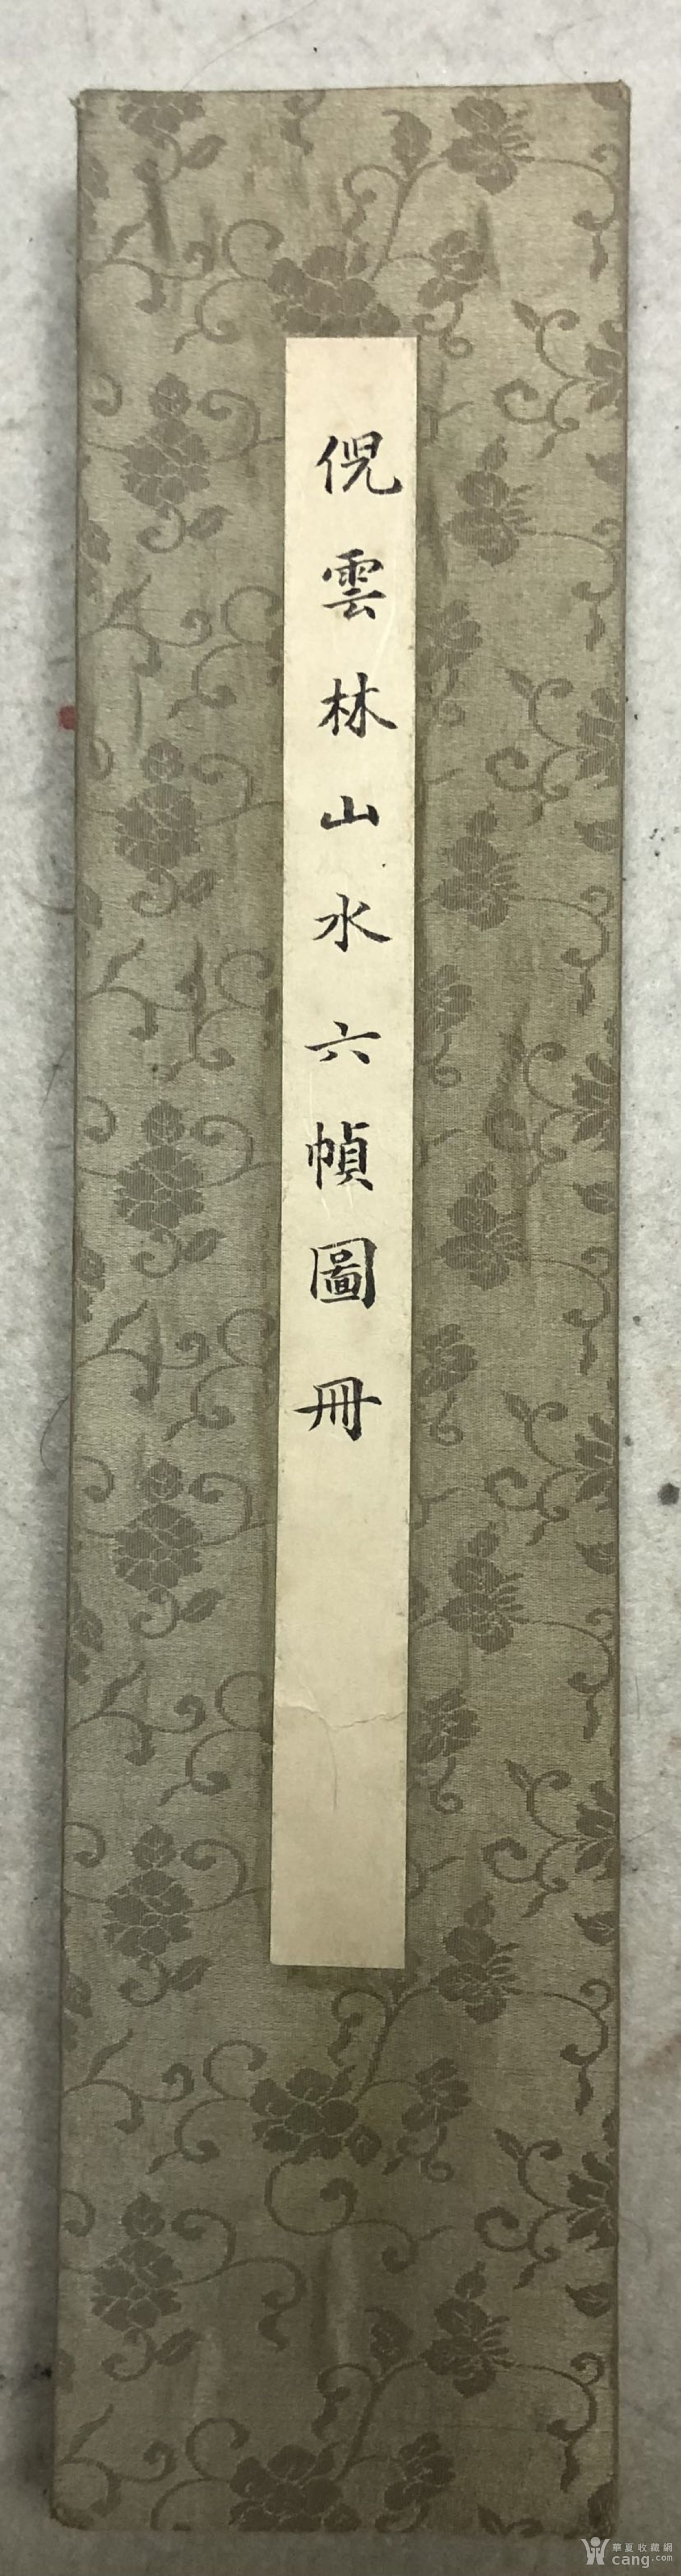 倪雲林山水六幀圖冊
華夏收藏網
cang.com